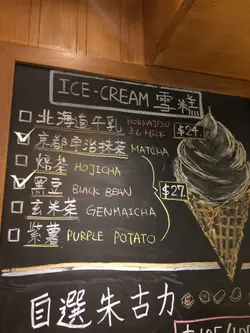 ICE-CREAM 雪糕
北海道牛乳 HOKKAIDO 3.6 MILK $24.
京都宇治抹茶 MATCHA
焙茶 HOJICHA
黑豆 BLACK BEAN $27.
玄米茶 GENMAICHA
紫薯 PURPLE POTATO
自選朱古力